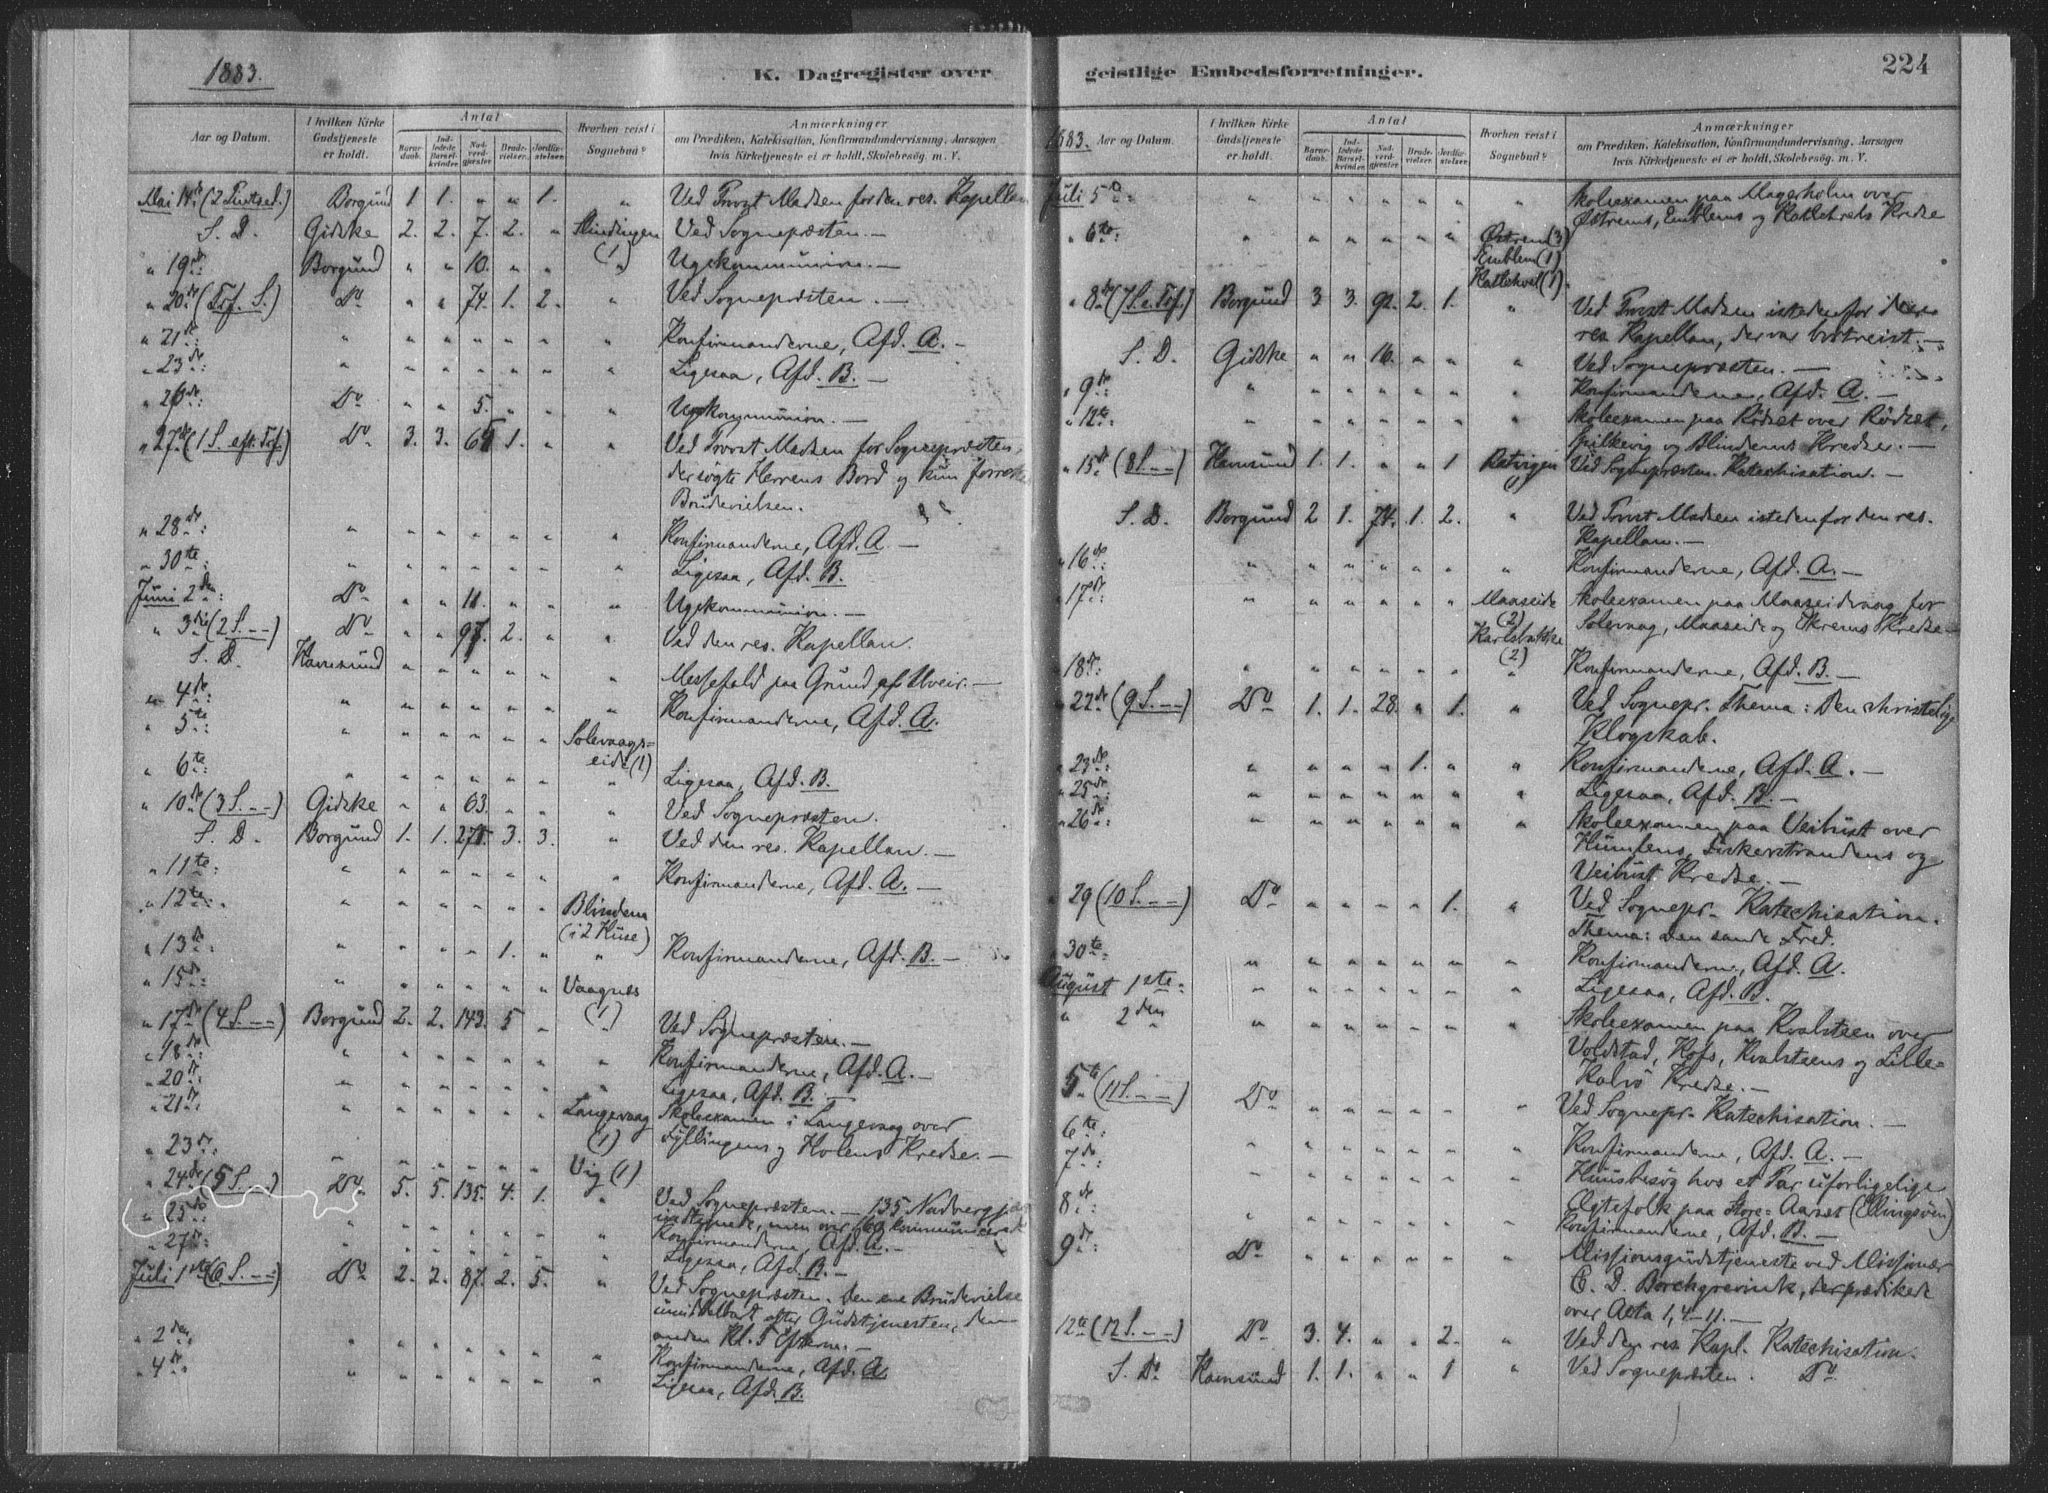 1883.
K. Dagregister over
Aar og Datum.
I hvilken Kirke Gudstjeneste er holdt.
Antal
Barnedaab.
Indledede Barselkvinder.
Nadverdgjester.
Brudevielser.
Jordfæstelser.
Hvorhen reist i Sognebud?
Anmærkninger
om Prædiken, Katekisation, Konfirmandundervisning, Aarsagen hvis Kirketjeneste ei er holdt, Skolebesøg m. V.
Mai 14de (2 Pintsed.) Borgund 1 1. " " 1. " Ved Provst Madsen for den res. Kapellan
S. D. Gidske 2. 2. 7. 2. " Slindingen (1) Ved Sognepræsten. —
" 19de: Borgund " " 10. " " " Ugekommunion. —
" 20de (Tref. S.) Do " " 74. 1. 2. " Ved Sognepræsten. —
" 21de: " " " " " " " Konfirmanderne, Afd. A. —
" 23de " " " " " " " Ligesaa, Afd. B. —
" 26de: Do " " 5. " " " Ugekommunion. —
" 27de (1 S. eft. Tref.) Do 3. 3. 65 1. " " Ved Provst Madsen for Sognepræsten,
der søgte Herrens Bord og kun forrettede
Brudevielsen.
" 28de: " " " " " " " Konfirmanderne, Afd. A —
" 30te: " " " " " " " Ligesaa, Afd. B.
Juni 2den: Do " " 11. " " " Ugekommunion. —
" 3die (2 S. - -) Do " " 97. 2. " " Ved den res. Kapellan.
S. D. Hamsund " " " " " " Messefald paa Grund af Uveir. —
" 4de " " " " " " " Konfirmanderne, Afd. A.
" 5te: " " " " " " Solevaagseide (1)
" 6te: " " " " " " " Ligesaa, Afd. B.
" 10de (3 S. - -) Gidske " " 63. " " " Ved Sognepræsten.
S. D. Borgund 1. 1. 278. 3. 3. " Ved den res. Kapellan. —
" 11te: " " " " " " " Konfirmanderne, Afd. A. —
" 12te: " " " " " " Blindem (i 2 Huse)
" 13de: " " " " 1. " " Konfirmanderne, Afd. B. —
" 15de: " " " " " " Vaagnes (1)
" 17de (4 S. - -) Borgund 2. 2. 143. 5 " Ved Sognepræsten. —
" 18de: " " " " " " " Konfirmanderne, Afd. A. —
" 20de: " " " " " " " Ligesaa, Afd. B. —
" 21de: " " " " " " Langevaag (1) Skoleexamen i Langevaag over
Fyllingens og Holens Kredse. —
" 23de: " " " " " " Vig (1)
" 24de (5 S. - -) Do 5. 5. 135. 4. 1. " Ved Sognepræsten. — 135 Nadvergjester
indtegnede, men over 160 kommunicerede
" 25de: " " " " " " " Konfirmanderne, Afd. A. —
" 27de: " " " " " " " Ligesaa, Afd. B. —
Juli 1ste (6 S. - -) Do 2. 2. 87. 2. 5. " Ved Sognepræsten. Den ene Brudevielse
umiddelbart efter Gudstjenesten, den
anden Kl. 5 Efterm. —
" 2den: " " " " " " " Konfirmanderne, Afd. A
" 4de: " " " " " " " Ligesaa, Afd. B.
geistlige Embedsforretninger.
224
1883.
Aar og Datum.
I hvilken Kirke Gudstjeneste er holdt.
Antal
Barnedaab.
Indledede Barselkvinder.
Nadverdgjester.
Brudevielser.
Jordfæstelser.
Hvorhen reist i Sognebud?
Anmærkninger
om Prædiken, Katekisation, Konfirmandundervisning, Aarsagen hvis Kirketjeneste ei er holdt, Skolebesøg m. V.
Juli 5te: " " " " " " " Skoleexamen paa Magerholm over
Østrems, Emblems og Ratlehvels Kredse
" 6te: " " " " " " Østrem (3)
Emblem (1)
Ratlehvel (1).
" 8de (7 S. e. Tref.) Borgund 3 3. 92. 2. 1. " Ved Provst Madsen istedenfor den
res. Kapellan, der var bortreist. —
S. D. Gidske " " 16. " " " Ved Sognepræsten. —
" 9de: " " " " " " " Konfirmanderne, Afd. A. —
" 12te: " " " " " " " Skoleexamen paa Rødset over Rødset,
Spilkevig og Blindems Kredse. —
" 15de (8 S. - -) Hamsund 1. 1. " " 1 Ratvigen Ved Sognepræsten. Katechisation. —
S. D. Borgund 2 1. 74. 1. 2. " Ved Provst Madsen istedenfor den res.
Kapellan. —
" 16de: " " " " " " " Konfirmanderne, Afd. A. —
" 17de: " " " " " " Maaseide (2) Skoleexamen paa Maaseidvaag for
Karlsbakke (2) Solevaag, Maaseide og Ekrems Kredse —
" 18de: " " " " " " " Konfirmanderne, Afd. B. —
" 22de (9 S. - -) Do 1. 1. 28. " 1. " Ved Sognepr. Thema: Den christelige
Klogskab.
" 23de: " " " " 1. " " Konfirmanderne, Afd. A. —
" 25de: " " " " " " " Ligesaa, Afd. B. —
" 26de: " " " " " " " Skoleexamen paa Veibust over
Humlens, Eikerstrandens og
Veibust Kredse. —
" 29 (10 S. - -) Do " " " " 1. " Ved Sognepr. Katechisation.
Thema: Den sande Fred.
" 30te: " " " " " " " Konfirmanderne, Afd. A.
August 1ste: " " " " " " " Ligesaa, Afd. B.
" 2den " " " " " " " Skoleexamen paa Kvalsteen over
Voldstad, Hofs, Kvalsteens og Lille-
Kalvø Kredse. —
5te (11 S. - -) Do " " " " " " Ved Sognepr. Katechisation. —
6te: " " " " " " Konfirmanderne, Afd. A. —
7de: " " " " " " Huusbesøg hos et Par uforligelige
Ægtefolk paa Store-Aarset (Ellingsøen)
8de: " " " " " " Konfirmanderne, Afd. B. —
9de: Do " " " " " " Missionsgudstjeneste ved Missionær
C. D. Borchgrevink, der prædikede
over Acta 1, 4-11. —
12te (12 S. - -) Do 3. 4. " " 2. " Ved den res. Kapl. Katechisation.
S. D. Hamsund 1. 1. " " 1 " Ved Sognepræsten. Do